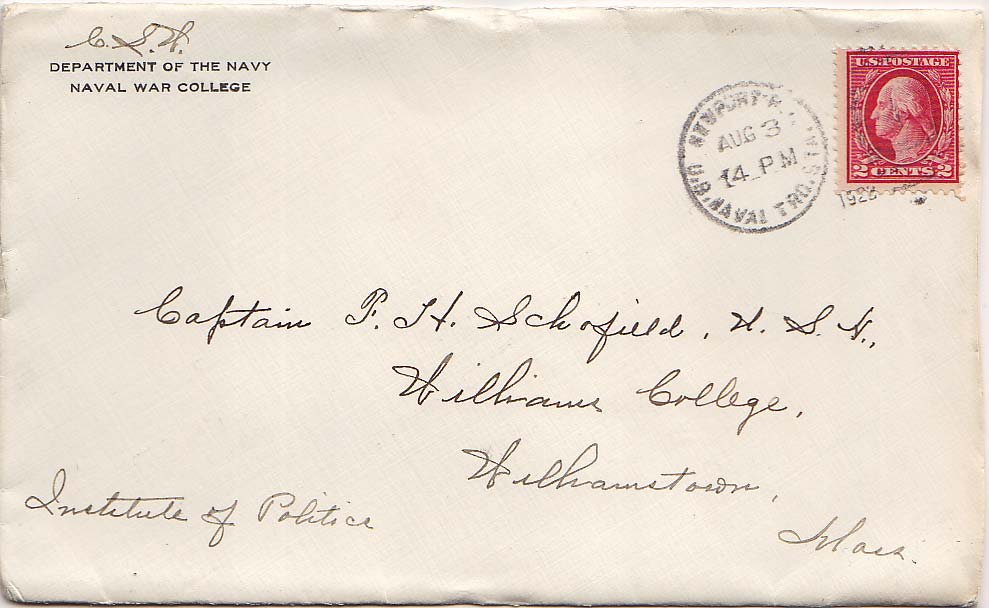 C. S. W.
DEPARTMENT OF THE NAVY
NAVAL WAR COLLEGE
NEWPORT R.I.
AUG 3
4 PM
U.S. NAVAL TRG. STA.
1922
U.S. POSTAGE
2 CENTS 2
Captain F. H. Schofield, U. S. N.,
Williams College,
Williamstown,
Mass.
Institute of Politics